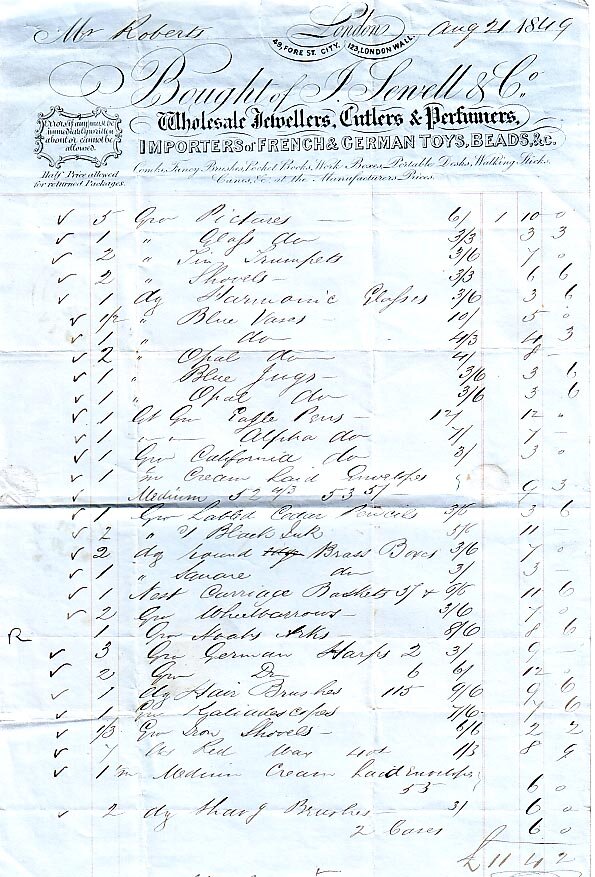 Mr Roberts
London Aug 21 1849
49, FORE ST. CITY. 123, LONDON WALL.
Bought of J. Sewell & Co.
Wholesale Jewellers, Cutlers & Perfumers,
IMPORTERS of FRENCH & GERMAN TOYS, BEADS, &c.
Combs, Fancy Brushes, Pocket Books, Work Boxes, Portable Desks, Walking Sticks,
Canes, &c. at the Manufacturers Prices.
Errors if any must be
immediately written
about or cannot be
allowed.
Half Price allowed
for returned Packages.
5 Gro Pictures — 6/ 1 10 0
1 " Glass do 3/3 3 3
2 " Tin Trumpets 3/6 7 0
2 " Shovels - 3/3 6 6
1 dz Harmonic Glasses 3/6 3 6
1/2 " Blue Vases - 10/ 5 0
1 " do 4/3 4 3
2 " Opal do 4/ 8 -
1 " Blue Jugs - 3/6 3 6
1 " Opal do 3/6 3 6
1 Gt Gro Eagle Pens - 12/ 12 "
1 " " Alpha do 7/ 7 -
1 Gro California do 3/ 3 0
1 m Cream Laid Envelopes
Medium 52 4/3 53 5/- 9 3
1 Gro Cedar Pencils 3/6 3 6
2 " Black Ink 5/6 11 -
2 dz round Brass Boxes 3/6 7 0
1 " Square do 3/ 3 -
1 Nest Carriage Baskets 3/ + 11 6
2 Gro Wheelbarrows - 3/6 7 0
R 1 Gro Noahs Arks 8/6 8 6
3 Gro German Harps 2 3/ 9 -
2 Gro Do 6 6/ 12 -
1 dz Hair Brushes 115 9/6 9 6
1 Gro 7/6 7 6
1/3 Gro Iron Shovels - 6/6 2 2
7 Red Wax 1/3 8 9
1 m Medium Cream Laid Envelopes
53 6 0
2 dz Shavg Brushes - 3/ 6 0
2 Cases 6 0
£ 11 4 2